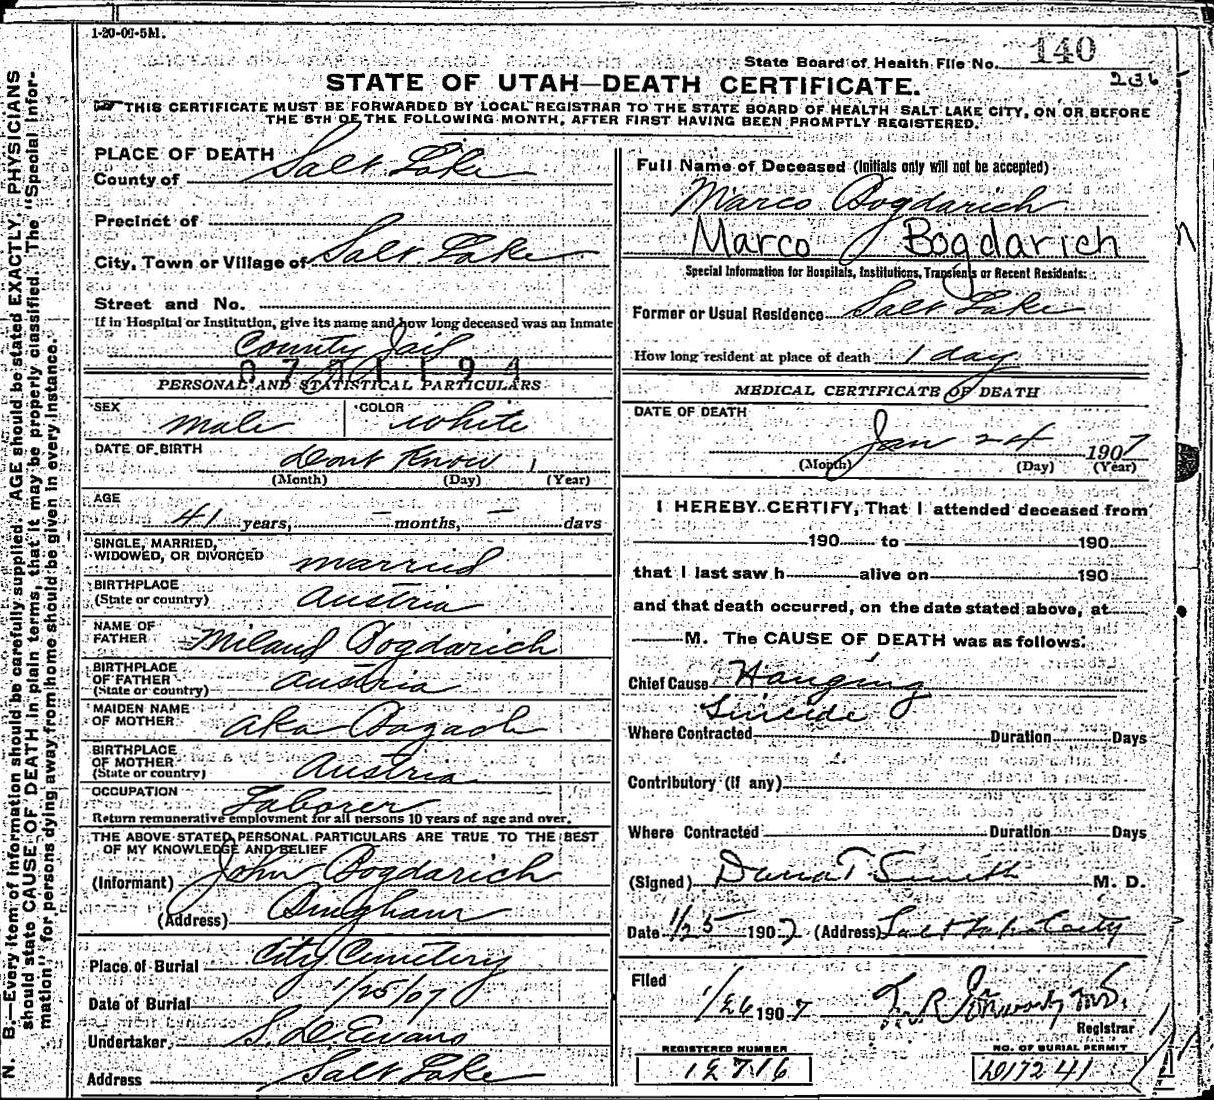 1-20-09-5M.
State Board of Health File No. 140
236
STATE OF UTAH—DEATH CERTIFICATE.
THIS CERTIFICATE MUST BE FORWARDED BY LOCAL REGISTRAR TO THE STATE BOARD OF HEALTH SALT LAKE CITY, ON OR BEFORE
THE 5TH OF THE FOLLOWING MONTH, AFTER FIRST HAVING BEEN PROMPTLY REGISTERED.
N. B.—Every item of information should be carefully supplied. AGE should be stated EXACTLY. PHYSICIANS
should state CAUSE OF DEATH in plain terms, that it may be properly classified. The "Special Infor-
mation" for persons dying away from home should be given in every instance.
PLACE OF DEATH
County of Salt Lake
Precinct of
City, Town or Village of Salt Lake
Street and No.
If in Hospital or Institution, give its name and how long deceased was an Inmate
County Jail
PERSONAL AND STATISTICAL PARTICULARS
SEX male COLOR white
DATE OF BIRTH dont Know
(Month) (Day) (Year)
AGE
41 years, — months, — days
SINGLE, MARRIED,
WIDOWED, OR DIVORCED married
BIRTHPLACE
(State or country) Austria
NAME OF
FATHER Miland Bogdarich
BIRTHPLACE
OF FATHER
(State or country) Austria
MAIDEN NAME
OF MOTHER aka
BIRTHPLACE
OF MOTHER
(State or country) Austria
OCCUPATION Laborer
Return remunerative employment for all persons 10 years of age and over.
THE ABOVE STATED PERSONAL PARTICULARS ARE TRUE TO THE BEST
OF MY KNOWLEDGE AND BELIEF
(Informant) John Bogdarich
(Address) Bingham
Place of Burial City Cemetery
Date of Burial 1/25/07
Undertaker, S. D. Evans
Address Salt Lake
Full Name of Deceased (Initials only will not be accepted)
Marco Bogdarich
Marco Bogdarich
Special Information for Hospitals, Institutions, Transients or Recent Residents:
Former or Usual Residence Salt Lake
How long resident at place of death 1 day
MEDICAL CERTIFICATE OF DEATH
DATE OF DEATH
Jan 24 1907
(Month) (Day) (Year)
I HEREBY CERTIFY, That I attended deceased from
190 to 190
that I last saw h alive on 190
and that death occurred, on the date stated above, at
M. The CAUSE OF DEATH was as follows:
Chief Cause Hanging
Suicide
Where Contracted Duration Days
Contributory (if any)
Where Contracted Duration Days
(Signed) Dana T Smith M. D.
Date 1/25 1907 (Address) Salt Lake City
Filed
1/26 1907 M.D.
Registrar
REGISTERED NUMBER
12716
NO. OF BURIAL PERMIT
D17241